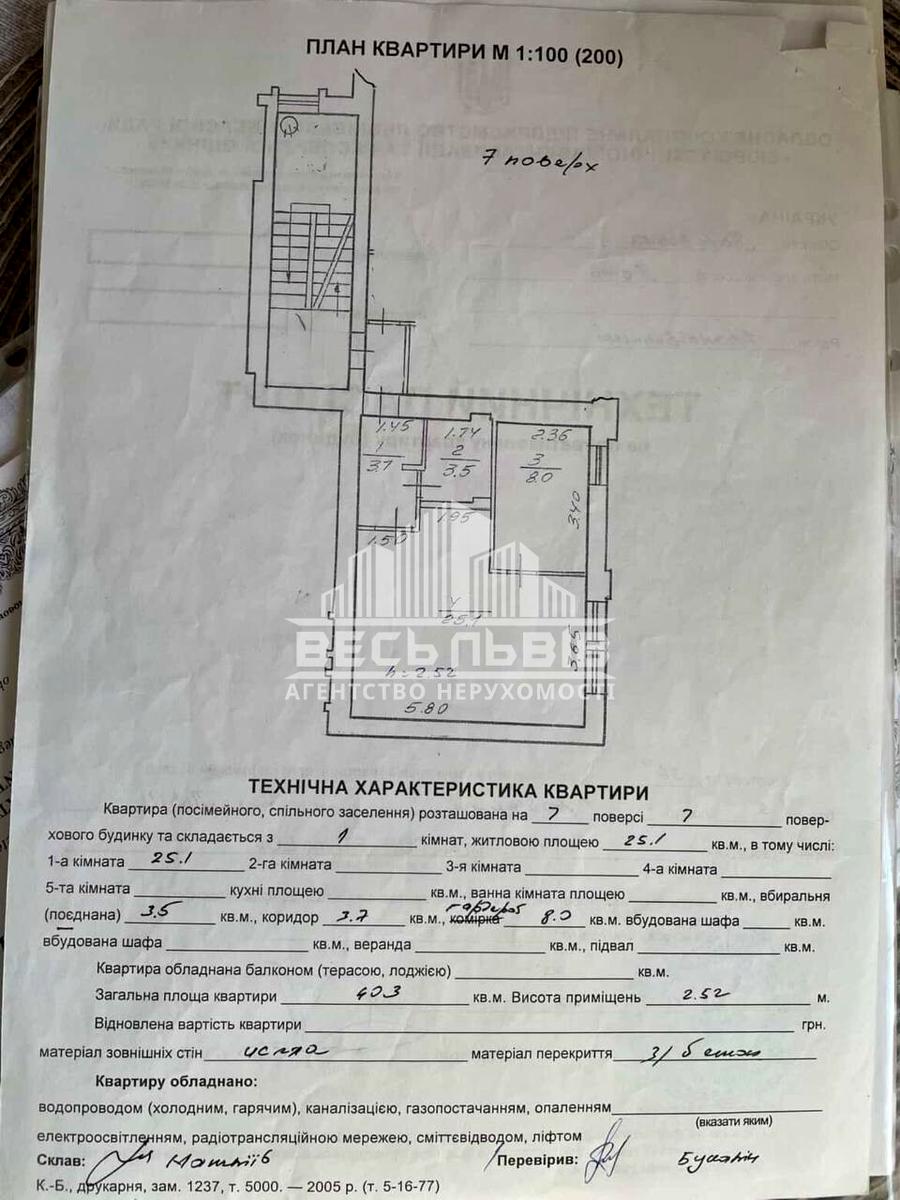 ПЛАН КВАРТИРИ М 1:100 (200)
7 поверх
1.45
1.74
2.36
1
3.7
2
3.5
3
8.0
3.40
1.95
1.50
4
25.1
3.65
ВЕСЬ ЛЬВІВ
h=2.52
АГЕНТСТВО НЕРУХОМОСТІ
5.80
ТЕХНІЧНА ХАРАКТЕРИСТИКА КВАРТИРИ
Квартира (посімейного, спільного заселення) розташована на 7 поверсі 7 повер-
хового будинку та складається з 1 кімнат, житловою площею 25.1 кв.м., в тому числі:
1-а кімната 25.1 2-га кімната 3-я кімната 4-а кімната
5-та кімната кухні площею кв.м., ванна кімната площею кв.м., вбиральня
(поєднана) 3.5 кв.м., коридор 3.7 кв.м., комірка гардероб 8.0 кв.м. вбудована шафа кв.м.
вбудована шафа кв.м., веранда кв.м., підвал кв.м.
Квартира обладнана балконом (терасою, лоджією) кв.м.
Загальна площа квартири 40.3 кв.м. Висота приміщень 2.52 м.
Відновлена вартість квартири грн.
матеріал зовнішніх стін цегла матеріал перекриття з/бетон
Квартиру обладнано:
водопроводом (холодним, гарячим), каналізацією, газопостачанням, опаленням
(вказати яким)
електроосвітленням, радіотрансляційною мережею, сміттєвідводом, ліфтом
Склав: Матвіїв Перевірив:
К.-Б., друкарня, зам. 1237, т. 5000. — 2005 р. (т. 5-16-77)